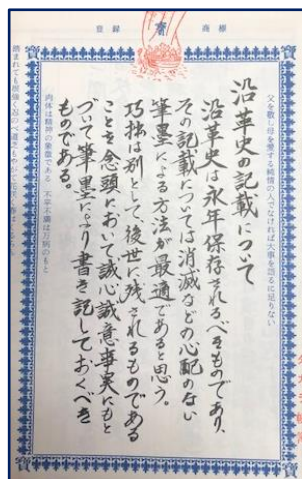 登録 商標
父を敬し母を愛する純情の人でなければ大事を語るに足りない
沿革史の記載について
沿革史は永年保存されるべきものであり、
その記載については消滅などの心配のない
筆墨による方法が最適であると思う。
巧拙は別として、後世に残されるものである
ことを念頭において誠心誠意事実にもと
づいて筆墨により書き記しておくべき
ものである。
肉体は精神の象徴である 不平不満は万病のもと